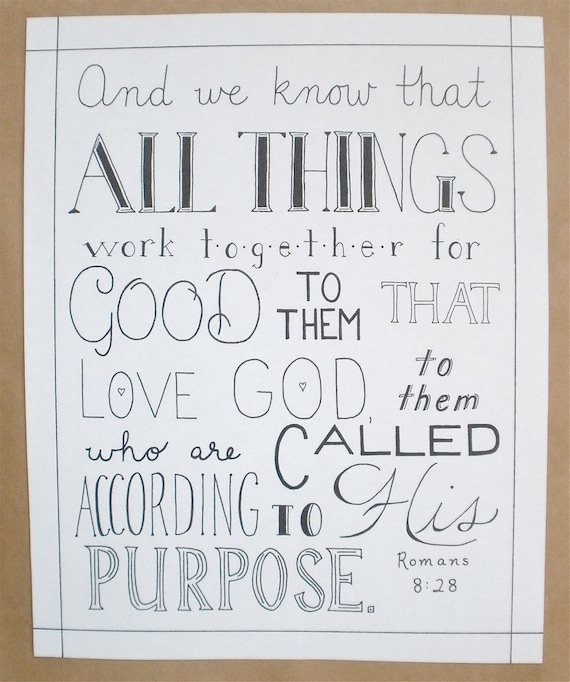 And we know that
ALL THINGS
work t·o·g·e·t·h·e·r for
GOOD TO THEM THAT
LOVE GOD, to them
who are CALLED
ACCORDING TO His
PURPOSE.
Romans
8:28